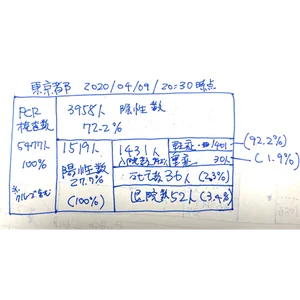 東京都 2020/04/09/20:30時点
PCR
検査数
5477人
100%
※
クルーズ含む
3958人 陰性数
72.2%
1519人
陽性数
27.7%
(100%)
1431人
入院数
軽症・中 1401
(92.2%)
重症 30人
(1.9%)
死亡数36人 (2.3%)
退院数52人 (3.4%)